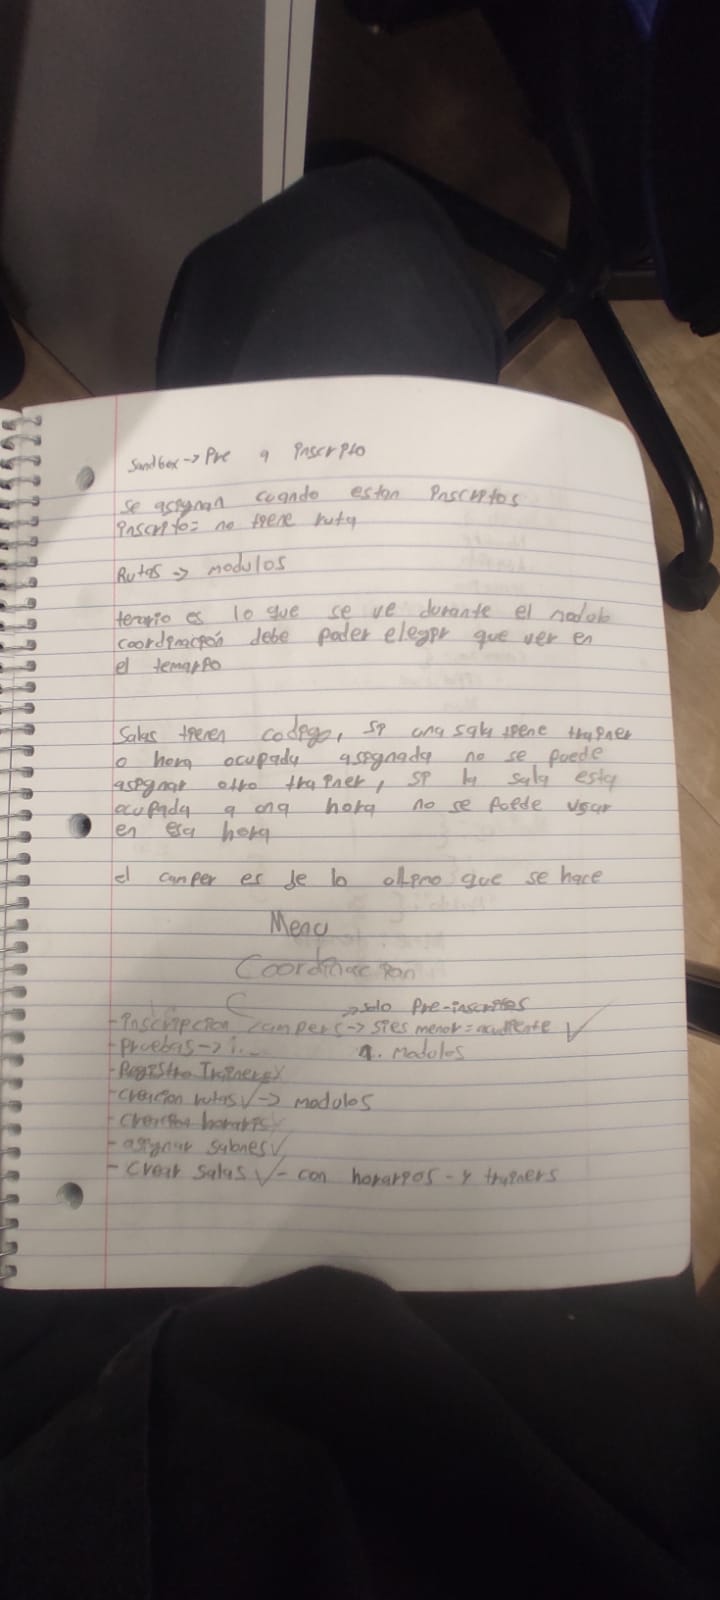 Sandbox -> Pre a inscrito
se asignan cuando estan inscritos
inscrito = no tiene ruta
Rutas -> modulos
temario es lo que se ve durante el modulo
coordinación debe poder elegir que ver en
el temario
Salas tienen codigo, si una sala tiene trainer
o hora ocupada asignada no se puede
asignar otro trainer, si la sala esta
ocupada a una hora no se puede usar
en esa hora
el camper es de lo ultimo que se hace
Menu
Coordinacion
-> solo Pre-inscritos
- inscripcion campers -> si es menor = acudiente ✓
- pruebas -> 1. modulos
- Registro Trainers
- creacion rutas ✓ -> modulos
- creacion horarios
- asignar salones ✓
- crear salas ✓ - con horarios - y trainers